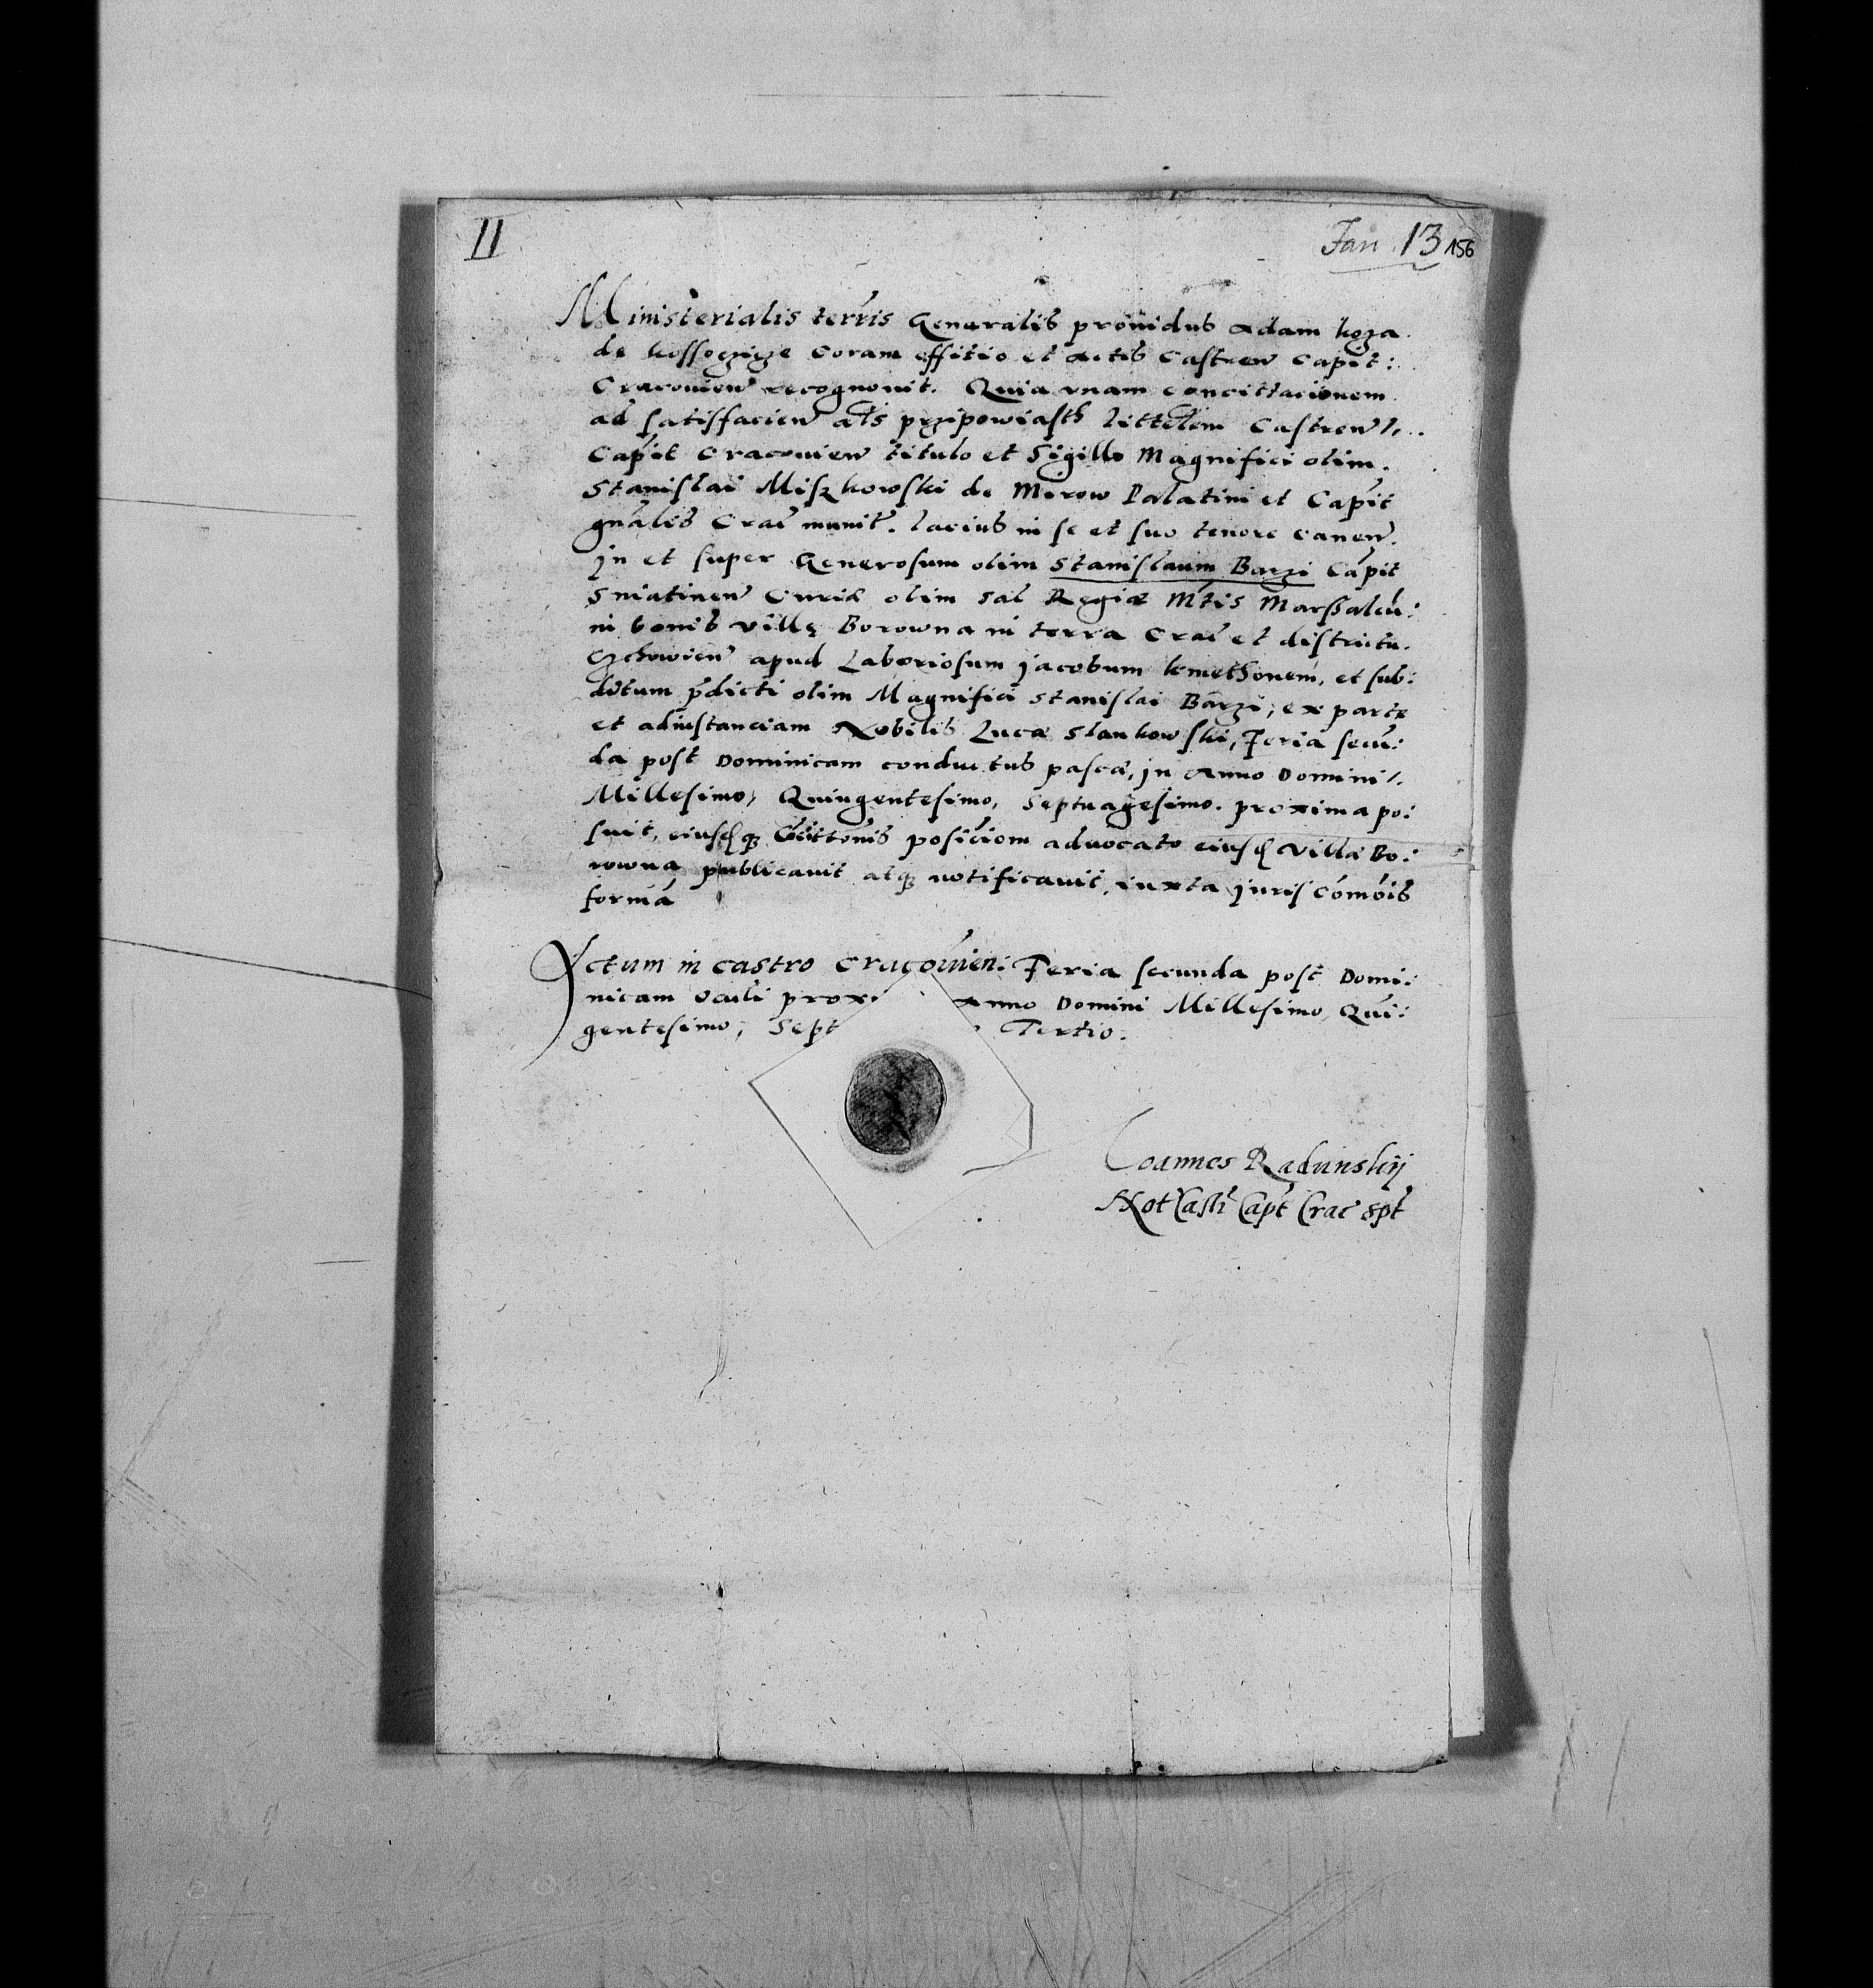 II
Jan. 13 156
Ministerialis terris Generalis providus Adam koza
de kossoczicze Coram officio et Actis Castren Capit:
Cracovien recognovit. Quia unam concittacionem
ad satisfacien als przipowiasth littelem Castren
Capit Cracovien titulo et Sigillo Magnifici olim
Stanislai Miszkowski de Mirow Palatini et Capit
gnalis Crac munit. lacius in se et suo tenore canen.
In et super Generosum olim Stanislaum Barzi Capit
Sniatinen Curiæ olim Sal Regiæ Mtis Marsalcu:
in bonis villę Borowna in terra Crac et districtu.
Czchowien apud Laboriosum Jacobum kmethonem, et sub:
ditum pdicti olim Magnifici Stanislai Barzi, ex parte
et adinstanciam Nobilis Lucæ Slankowski, Feria secu:
da post Dominicam conductus pascæ, in Anno Domini
Millesimo, Quingentesimo, Septuagesimo. proxima po:
suit, eiusdq posiciom advocato eiusd villæ Bo:
rowna publicavit atq notificavit, iuxta Juris Comois
forma
Actum in castro Cracovien: Feria secunda post Domi:
nicam oculi prox Anno Domini Millesimo, Qui:
gentesimo, Sept Tertio.
Joannes Radunskij
Not Castr Capt Crac spt